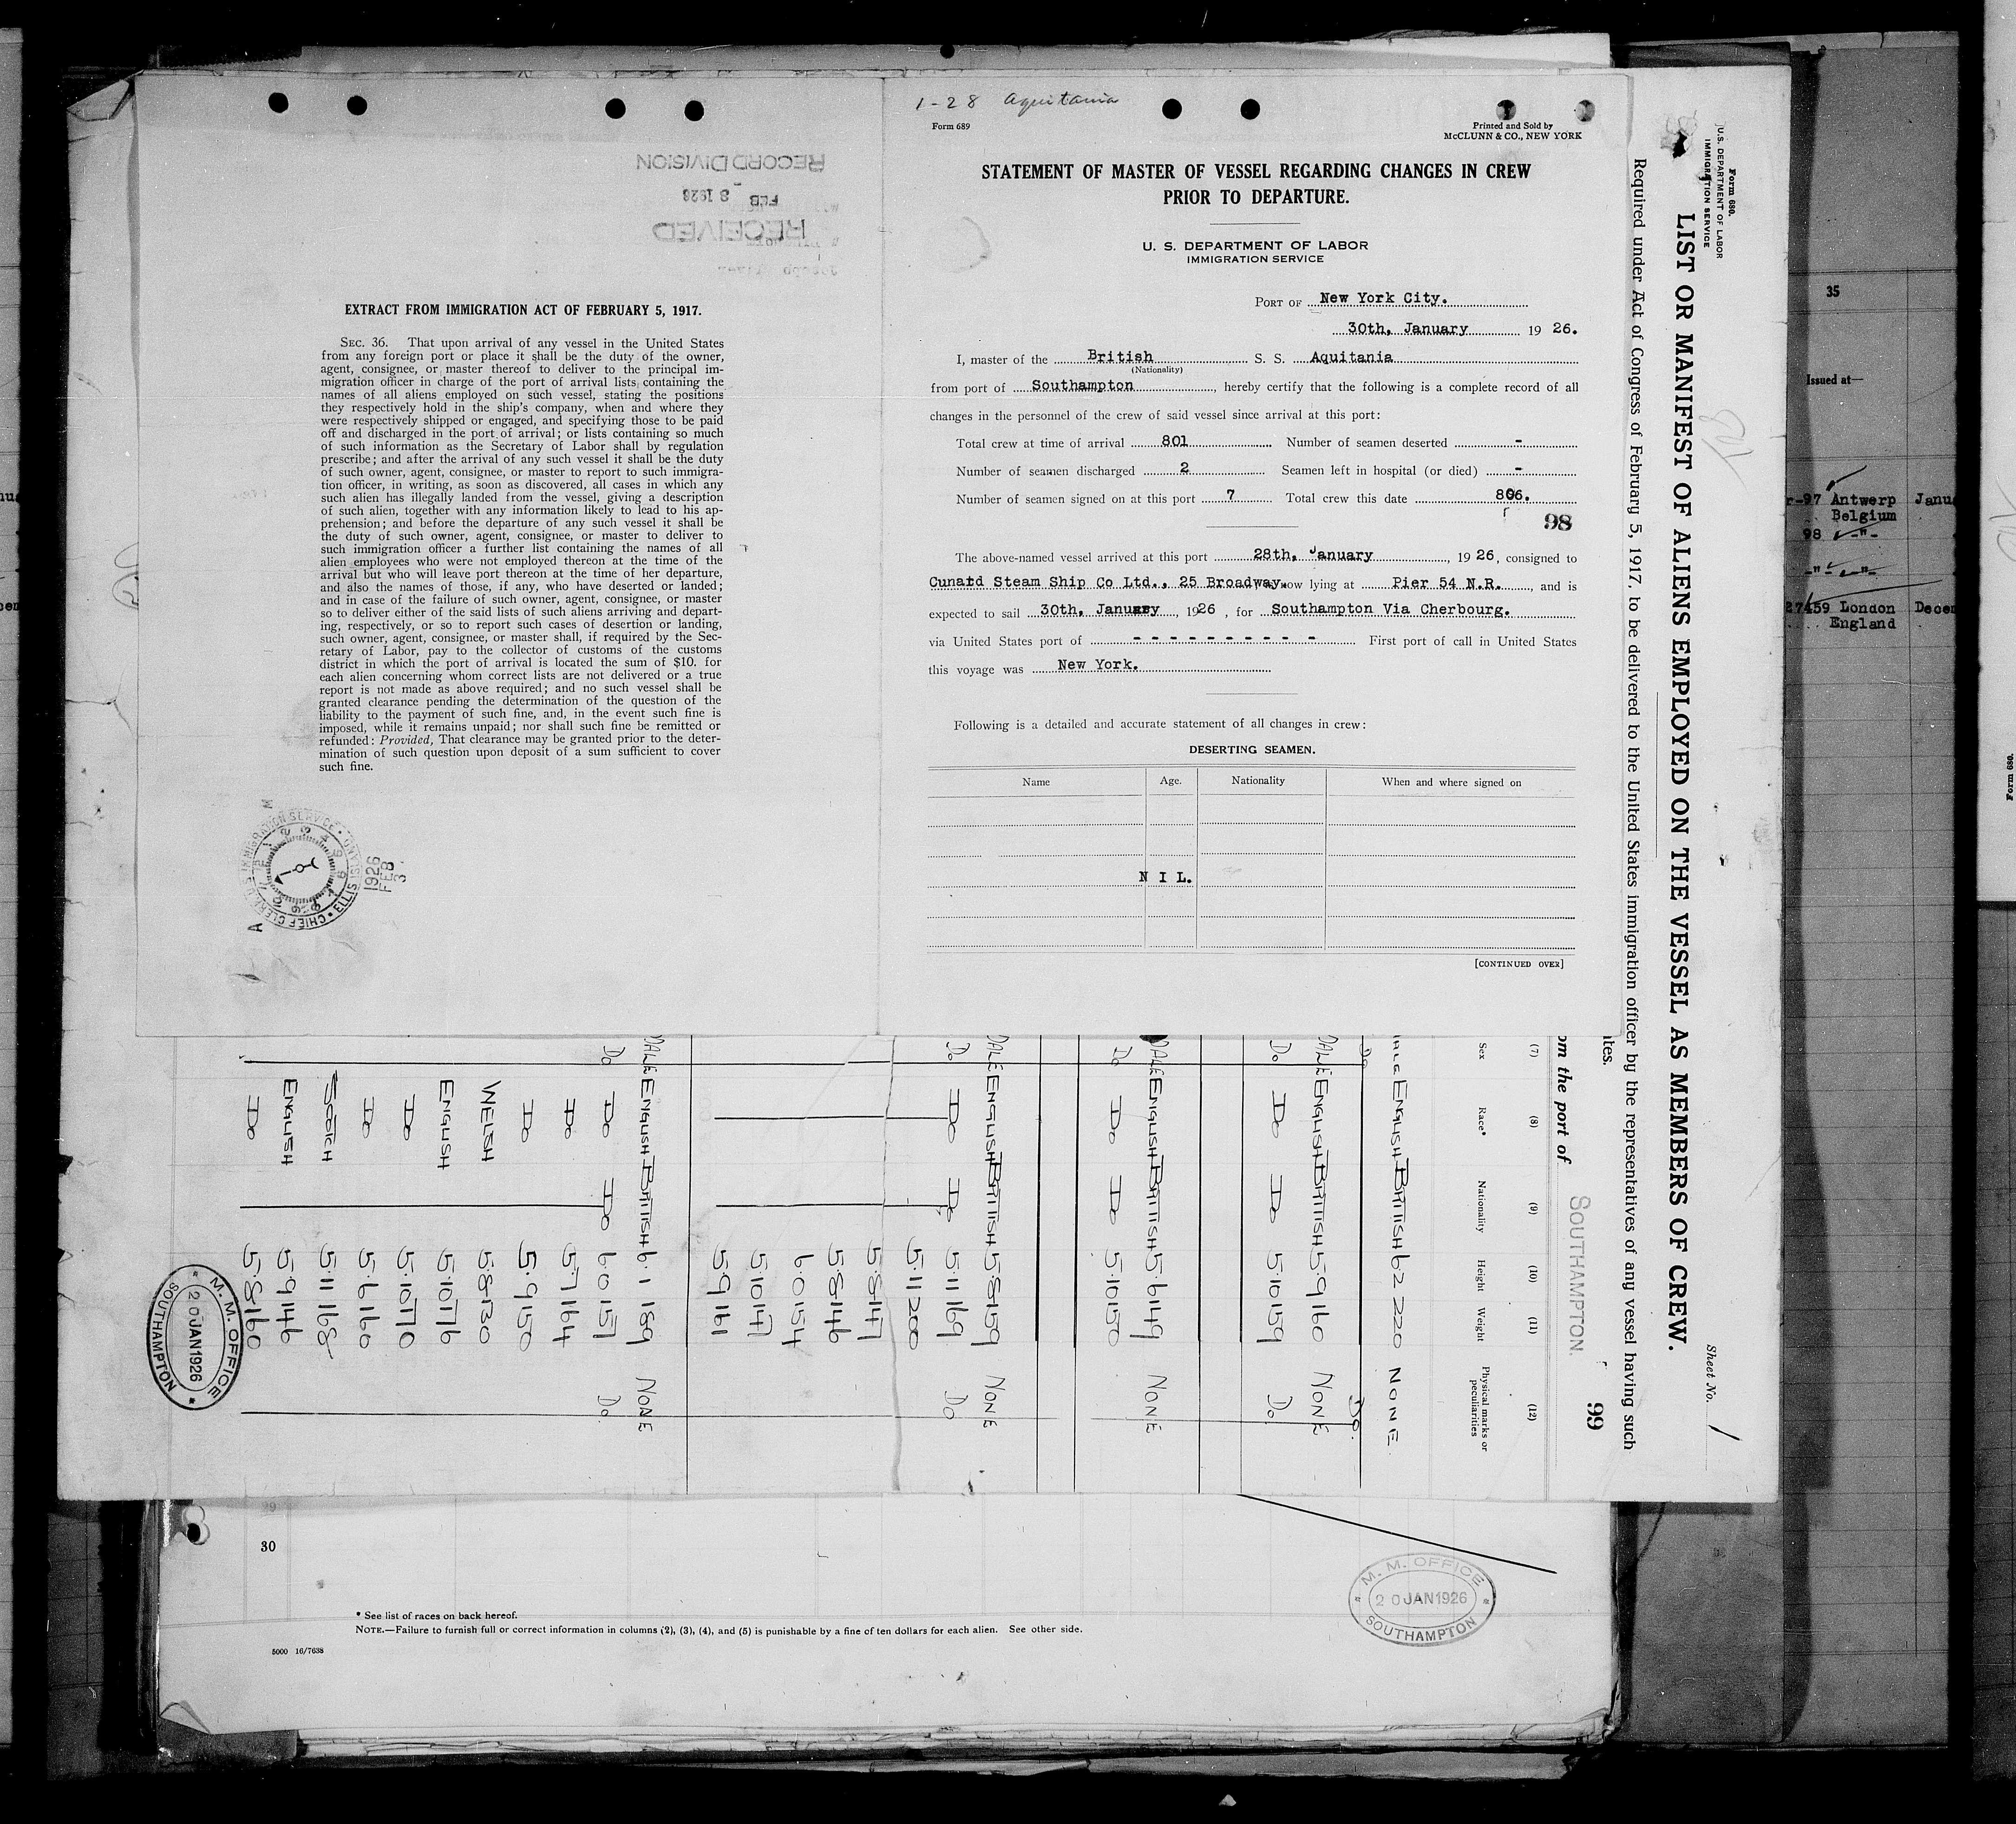 1-28 Aquitania
Form 689
Printed and Sold by
McCLUNN & CO., NEW YORK
STATEMENT OF MASTER OF VESSEL REGARDING CHANGES IN CREW
PRIOR TO DEPARTURE.
U. S. DEPARTMENT OF LABOR
IMMIGRATION SERVICE
PORT OF New York City.
30th, January 19 26.
I, master of the British S. S. Aquitania
(Nationality)
from port of Southampton, hereby certify that the following is a complete record of all
changes in the personnel of the crew of said vessel since arrival at this port:
Total crew at time of arrival 801 Number of seamen deserted -
Number of seamen discharged 2 Seamen left in hospital (or died) -
Number of seamen signed on at this port 7 Total crew this date 806.
98
The above-named vessel arrived at this port 28th, January, 19 26, consigned to
Cunard Steam Ship Co Ltd., 25 Broadway. now lying at Pier 54 N.R., and is
expected to sail 30th, January, 1926, for Southampton Via Cherbourg.
via United States port of - - - - - - - - - - First port of call in United States
this voyage was New York.
Following is a detailed and accurate statement of all changes in crew:
DESERTING SEAMEN.
Name Age. Nationality When and where signed on
N I L.
[CONTINUED OVER]
RECORD DIVISION
FEB 3 1926
RECEIVED
EXTRACT FROM IMMIGRATION ACT OF FEBRUARY 5, 1917.
SEC. 36. That upon arrival of any vessel in the United States
from any foreign port or place it shall be the duty of the owner,
agent, consignee, or master thereof to deliver to the principal im-
migration officer in charge of the port of arrival lists containing the
names of all aliens employed on such vessel, stating the positions
they respectively hold in the ship's company, when and where they
were respectively shipped or engaged, and specifying those to be paid
off and discharged in the port of arrival; or lists containing so much
of such information as the Secretary of Labor shall by regulation
prescribe; and after the arrival of any such vessel it shall be the duty
of such owner, agent, consignee, or master to report to such immigra-
tion officer, in writing, as soon as discovered, all cases in which any
such alien has illegally landed from the vessel, giving a description
of such alien, together with any information likely to lead to his ap-
prehension; and before the departure of any such vessel it shall be
the duty of such owner, agent, consignee, or master to deliver to
such immigration officer a further list containing the names of all
alien employees who were not employed thereon at the time of the
arrival but who will leave port thereon at the time of her departure,
and also the names of those, if any, who have deserted or landed;
and in case of the failure of such owner, agent, consignee, or master
so to deliver either of the said lists of such aliens arriving and depart-
ing, respectively, or so to report such cases of desertion or landing,
such owner, agent, consignee, or master shall, if required by the Sec-
retary of Labor, pay to the collector of customs of the customs
district in which the port of arrival is located the sum of $10. for
each alien concerning whom correct lists are not delivered or a true
report is not made as above required; and no such vessel shall be
granted clearance pending the determination of the question of the
liability to the payment of such fine, and, in the event such fine is
imposed, while it remains unpaid; nor shall such fine be remitted or
refunded: Provided, That clearance may be granted prior to the deter-
mination of such question upon deposit of a sum sufficient to cover
such fine.
IMMIGRATION SERVICE • ELLIS ISLAND • CHIEF CLERK
1926
FEB
3
Form 680.
U.S. DEPARTMENT OF LABOR
IMMIGRATION SERVICE
Sheet No. 1
LIST OR MANIFEST OF ALIENS EMPLOYED ON THE VESSEL AS MEMBERS OF CREW.
Required under Act of Congress of February 5, 1917, to be delivered to the United States immigration officer by the representatives of any vessel having such
99
om the port of SOUTHAMPTON.
(7) (8) (9) (10) (11) (12)
Sex Race* Nationality Height Weight Physical marks or peculiarities
ENGLISH BRITISH 6 2 220 NONE.
Do Do.
ENGLISH BRITISH 5·9 160 NONE
Do Do Do 5·10 159 Do.
ENGLISH BRITISH 5·6 149 NONE
Do Do Do 5·10 150
ENGLISH BRITISH 5·8 159 NONE
Do Do Do 5·11 169 Do
5·11 200
5·8 147
5·8 146
6·0 154
5·10 147
5·9 161
ENGLISH BRITISH 6·1 189 NONE
Do Do Do 6·0 157 Do.
Do 5·7 164
Do 5·9 150
WELSH 5·8 130
ENGLISH 5·10 176
Do 5·10 170
Do 5·6 160
SCOTCH 5·11 168
ENGLISH 5·9 146
Do 5·8 160
M. M. OFFICE
20 JAN 1926
SOUTHAMPTON
35
Issued at—
r-97 Antwerp Janu
Belgium
98 -"-
-"- -"-
27459 London Decem
England
29
30
M. M. OFFICE
20 JAN 1926
SOUTHAMPTON
* See list of races on back hereof.
NOTE.—Failure to furnish full or correct information in columns (2), (3), (4), and (5) is punishable by a fine of ten dollars for each alien. See other side.
5000 16/7638
Form 689